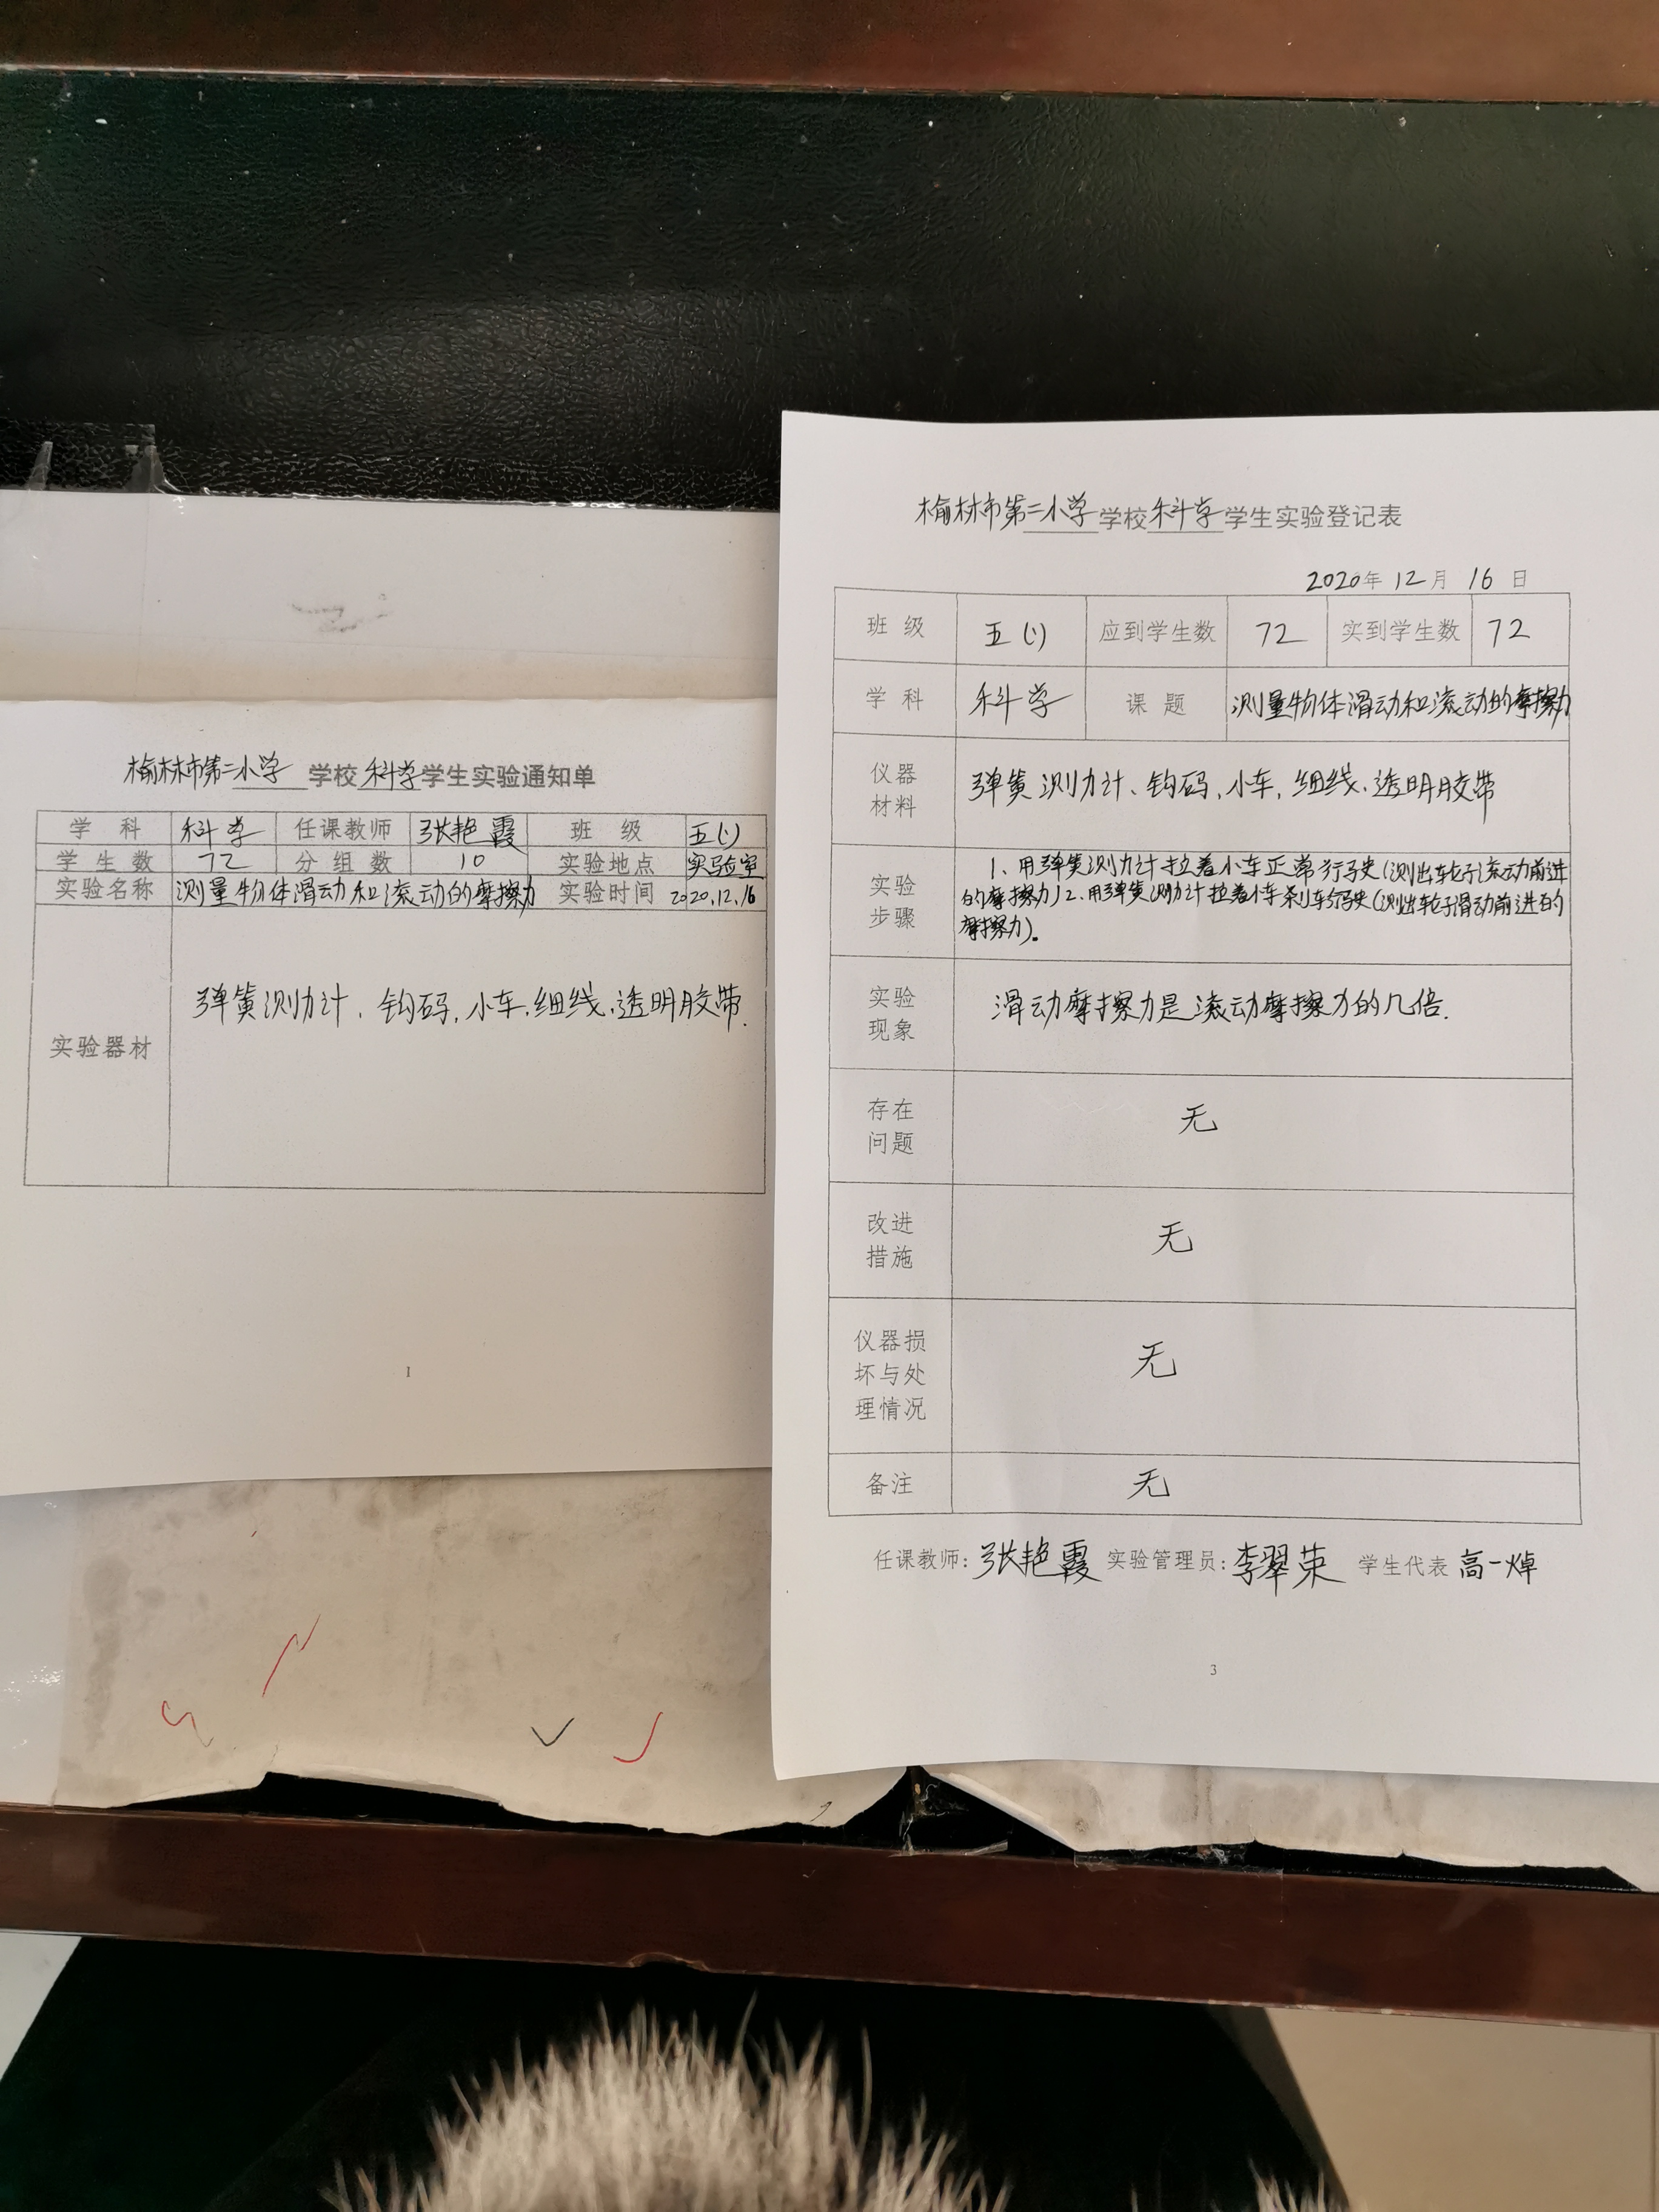 榆林市第二小学学校科学学生实验通知单
学科 科学 任课教师 张艳霞 班级 五(1)
学生数 72 分组数 10 实验地点 实验室
实验名称 测量物体滑动和滚动的摩擦力 实验时间 2020.12.16
实验器材 弹簧测力计、钩码、小车、细线、透明胶带.
1
榆林市第二小学学校科学学生实验登记表
2020年12月16日
班级 五(1) 应到学生数 72 实到学生数 72
学科 科学 课题 测量物体滑动和滚动的摩擦力
仪器
材料
弹簧测力计、钩码、小车、细线、透明胶带
实验
步骤
1、用弹簧测力计拉着小车正常行驶(测出轮子滚动前进
的摩擦力)2、用弹簧测力计拉着小车刹车行驶(测出轮子滑动前进的
摩擦力)。
实验
现象
滑动摩擦力是滚动摩擦力的几倍.
存在
问题
无
改进
措施
无
仪器损
坏与处
理情况
无
备注 无
任课教师:张艳霞 实验管理员:李翠荣 学生代表 高一焯
3